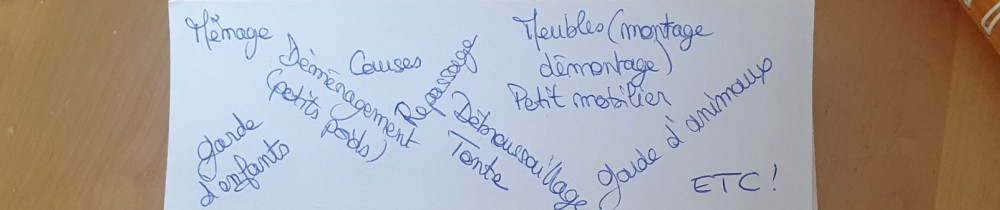 Ménage
Déménagement
(petits poids)
Causes
Repassage
Meubles (montage
démontage)
Petit mobilier
garde
d'enfants
Débroussaillage
Tonte
garde d'animaux
ETC !